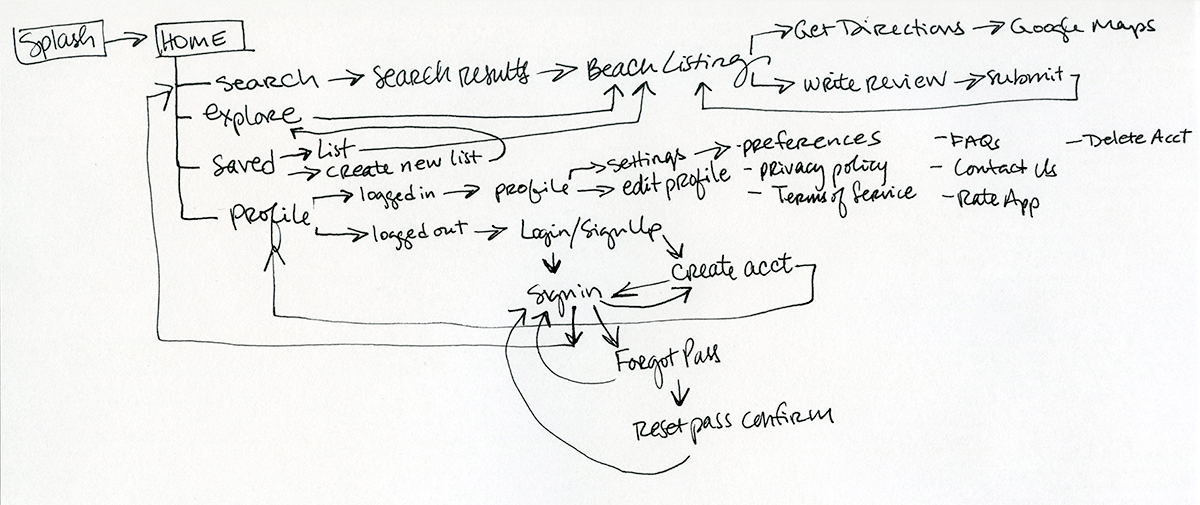 Splash
HOME
search
search results
Beach Listing
Get Directions
Google Maps
write review
submit
explore
saved
List
create new list
profile
logged in
profile
settings
edit profile
- preferences
- privacy policy
- Terms of Service
- FAQs
- Contact Us
- Rate App
- Delete Acct
logged out
Login/SignUp
Create acct
Sign in
Forgot Pass
Reset pass confirm